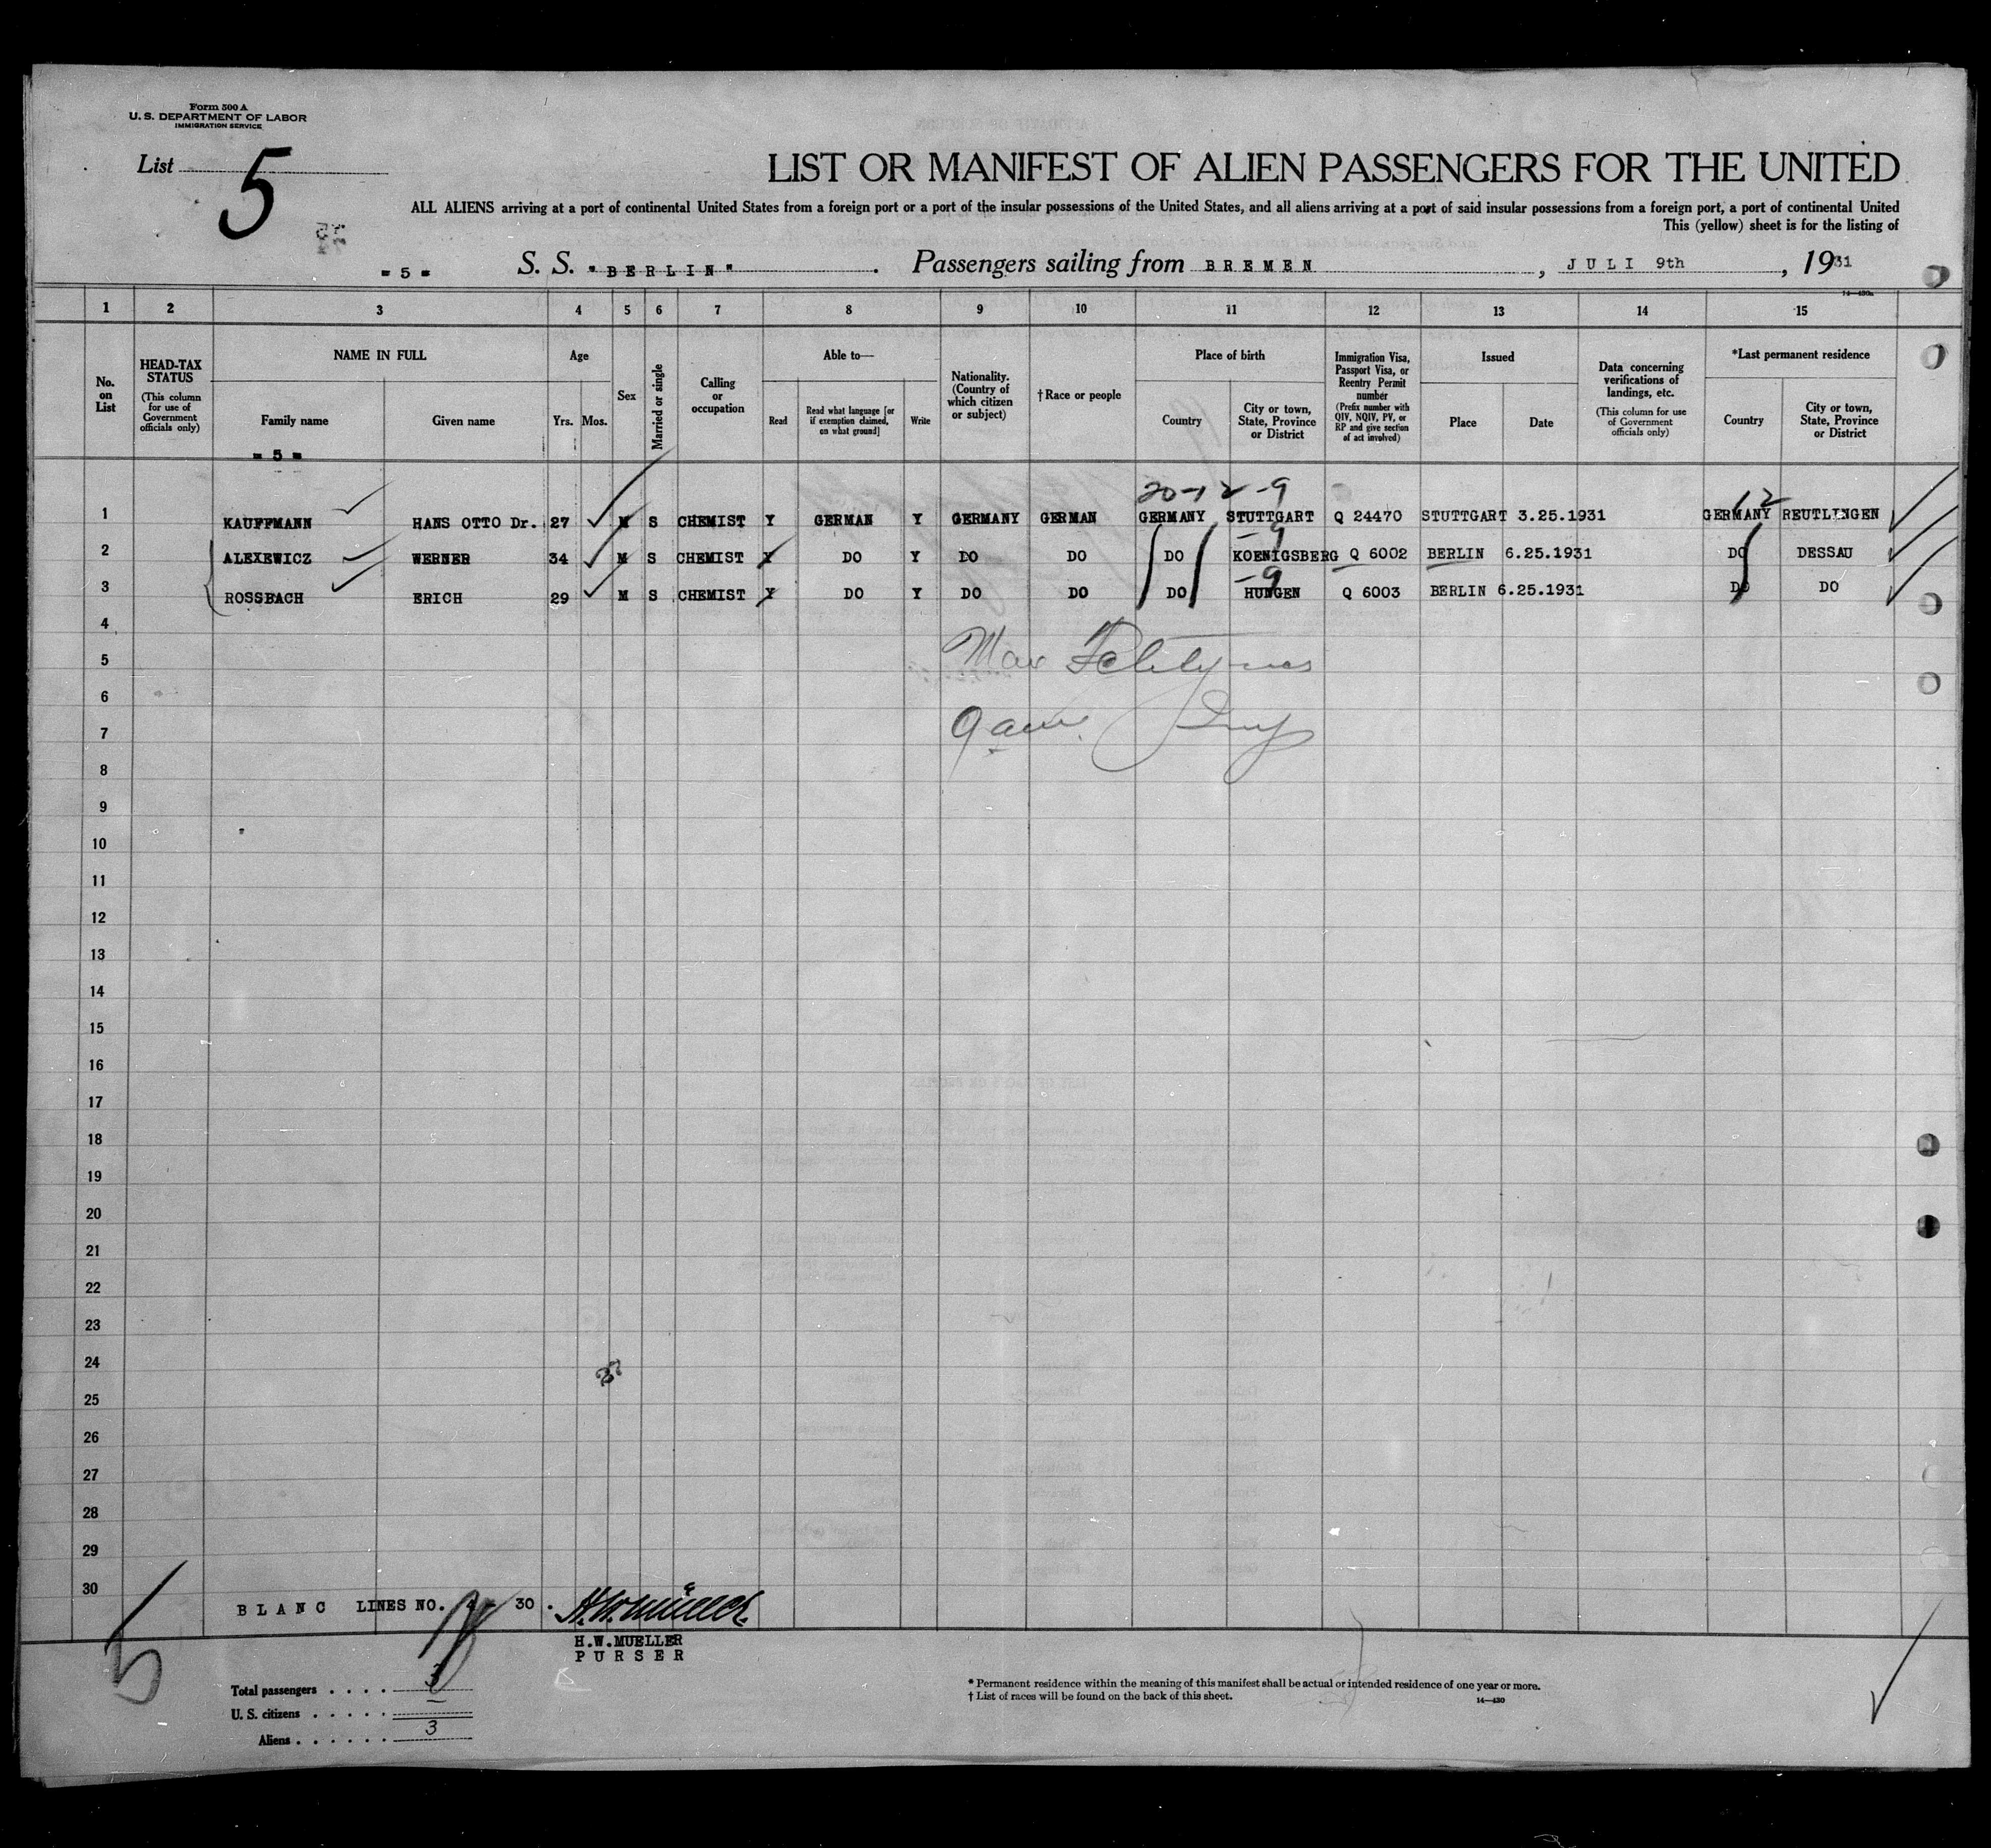 Form 500 A
U. S. DEPARTMENT OF LABOR
IMMIGRATION SERVICE
List 5
LIST OR MANIFEST OF ALIEN PASSENGERS FOR THE UNITED
ALL ALIENS arriving at a port of continental United States from a foreign port or a port of the insular possessions of the United States, and all aliens arriving at a port of said insular possessions from a foreign port, a port of continental United
This (yellow) sheet is for the listing of
- 5 - S. S. "BERLIN" . Passengers sailing from BREMEN , JULI 9th , 1931
14—430a
1 2 3 4 5 6 7 8 9 10 11 12 13 14 15
No. on List
HEAD-TAX STATUS (This column for use of Government officials only)
NAME IN FULL
Family name
Given name
Age
Yrs. Mos.
Sex
Married or single
Calling or occupation
Able to—
Read
Read what language [or if exemption claimed, on what ground]
Write
Nationality. (Country of which citizen or subject)
†Race or people
Place of birth
Country
City or town, State, Province or District
Immigration Visa, Passport Visa, or Reentry Permit number (Prefix number with QIV, NQIV, PV, or RP and give section of act involved)
Issued
Place
Date
Data concerning verifications of landings, etc. (This column for use of Government officials only)
*Last permanent residence
Country
City or town, State, Province or District
- 5 -
20-12-9 12
1 KAUFFMANN HANS OTTO Dr. 27 M S CHEMIST Y GERMAN Y GERMANY GERMAN GERMANY STUTTGART Q 24470 STUTTGART 3.25.1931 GERMANY REUTLINGEN
-9
2 ALEXEWICZ WERNER 34 M S CHEMIST Y DO Y DO DO DO KOENIGSBERG Q 6002 BERLIN 6.25.1931 DO DESSAU
-9
3 ROSSBACH ERICH 29 M S CHEMIST Y DO Y DO DO DO HUNGEN Q 6003 BERLIN 6.25.1931 DO DO
4
5 Max
6
7
8
9
10
11
12
13
14
15
16
17
18
19
20
21
22
23
24
25
26
27
28
29
30
BLANC LINES NO. 4 - 30.
H.W. Müller
H.W.MUELLER
PURSER
5
Total passengers . . . . 3
U. S. citizens . . . . . —
Aliens . . . . . . 3
* Permanent residence within the meaning of this manifest shall be actual or intended residence of one year or more.
† List of races will be found on the back of this sheet.
14—430